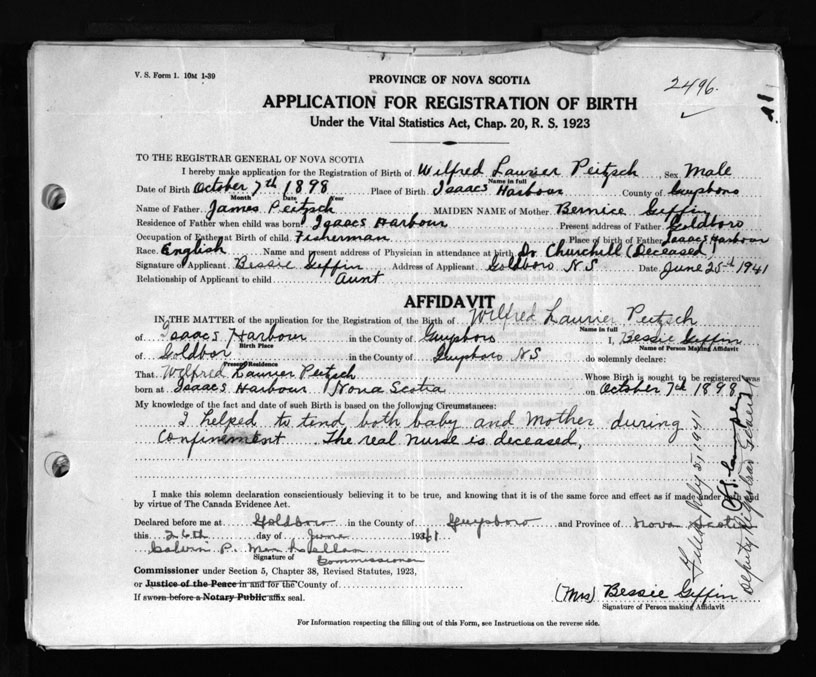 V. S. Form 1. 10M 1-39
PROVINCE OF NOVA SCOTIA
2496.
APPLICATION FOR REGISTRATION OF BIRTH
Under the Vital Statistics Act, Chap. 20, R. S. 1923
TO THE REGISTRAR GENERAL OF NOVA SCOTIA
I hereby make application for the Registration of Birth of Wilfred Laurier Peitzsch Sex Male
Name in full
Date of Birth October 7th 1898 Place of Birth Isaacs Harbour County of Guysboro
Month Date Year
Name of Father James Peitzsch MAIDEN NAME of Mother Bernice Giffin
Residence of Father when child was born? Isaacs Harbour Present address of Father Goldboro
Occupation of Father at Birth of child Fisherman Place of birth of Father Isaacs Harbour
Race English Name and present address of Physician in attendance at birth Dr Churchill (Deceased)
Signature of Applicant Bessie Giffin Address of Applicant Goldboro N S Date June 25th 1941
Relationship of Applicant to child Aunt
AFFIDAVIT
IN THE MATTER of the application for the Registration of the Birth of Wilfred Laurier Peitzsch
Name in full
of Isaacs Harbour in the County of Guysboro I, Bessie Giffin
Birth Place Name of Person Making Affidavit
of Goldbor in the County of Guysboro N S do solemnly declare:
Present Residence
That Wilfred Laurier Peitzsch Whose Birth is sought to be registered was
born at Isaacs Harbour Nova Scotia on October 7th 1898
My knowledge of the fact and date of such Birth is based on the following Circumstances:
I helped to tend both baby and Mother during
Confinement. The real nurse is deceased,
I make this solemn declaration conscientiously believing it to be true, and knowing that it is of the same force and effect as if made under oath and
by virtue of The Canada Evidence Act.
Declared before me at Goldboro in the County of Guysboro and Province of Nova Scotia
this 26th day of June 1941
Calvin P. MacLellan
Signature of Commissioner
Commissioner under Section 5, Chapter 38, Revised Statutes, 1923,
or Justice of the Peace in and for the County of
If sworn before a Notary Public affix seal.
(Mrs) Bessie Giffin
Signature of Person making Affidavit
For Information respecting the filling out of this Form, see Instructions on the reverse side.
Filed July 5, 1941
Deputy Registrar General